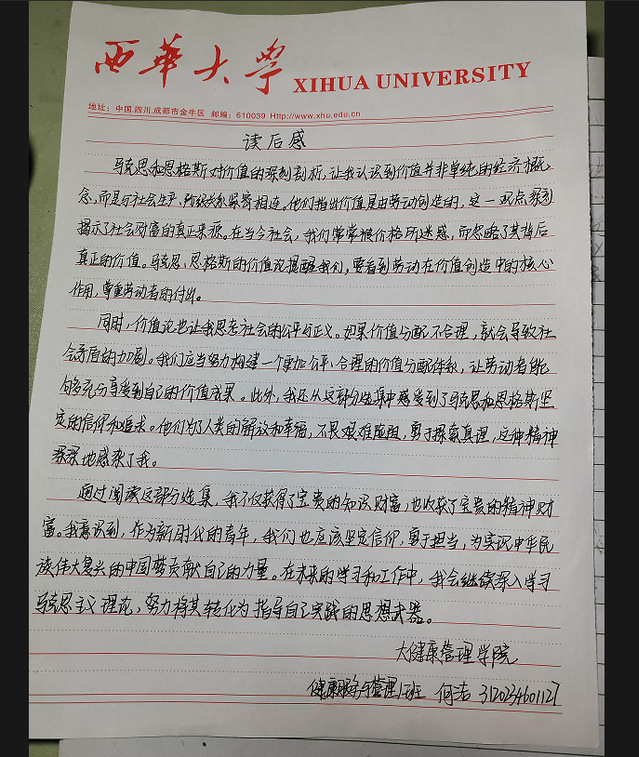 西華大学 XIHUA UNIVERSITY
地址：中国.四川.成都市金牛区 邮编：610039 Http://www.xhu.edu.cn
读后感
马克思和恩格斯对价值的深刻剖析，让我认识到价值并非单纯的经济概
念，而是与社会生产、阶级关系紧密相连。他们指出价值是由劳动创造的，这一观点深刻
揭示了社会财富的真正来源。在当今社会，我们常常被价格所迷惑，而忽略了其背后
真正的价值。马克思、恩格斯的价值论提醒我们，要看到劳动在价值创造中的核心
作用，尊重劳动者的付出。
同时，价值论也让我思考社会的公平与正义。如果价值分配不合理，就会导致社
会矛盾的加剧。我们应当努力构建一个更加公平、合理的价值分配体系，让劳动者能
够充分享受到自己的价值成果。此外，我还从这部分选集中感受到了马克思和恩格斯坚
定的信仰和追求。他们为了人类的解放和幸福，不畏艰难险阻，勇于探索真理，这种精神
深深地感染了我。
通过阅读这部分选集，我不仅获得了宝贵的知识财富，也收获了宝贵的精神财
富。我意识到，作为新时代的青年，我们也应该坚定信仰，勇于担当，为实现中华民
族伟大复兴的中国梦贡献自己的力量。在未来的学习和工作中，我会继续深入学习
马克思主义理论，努力将其转化为指导自己实践的思想武器。
大健康管理学院
健康服务与管理1班 何洁 3120234601127